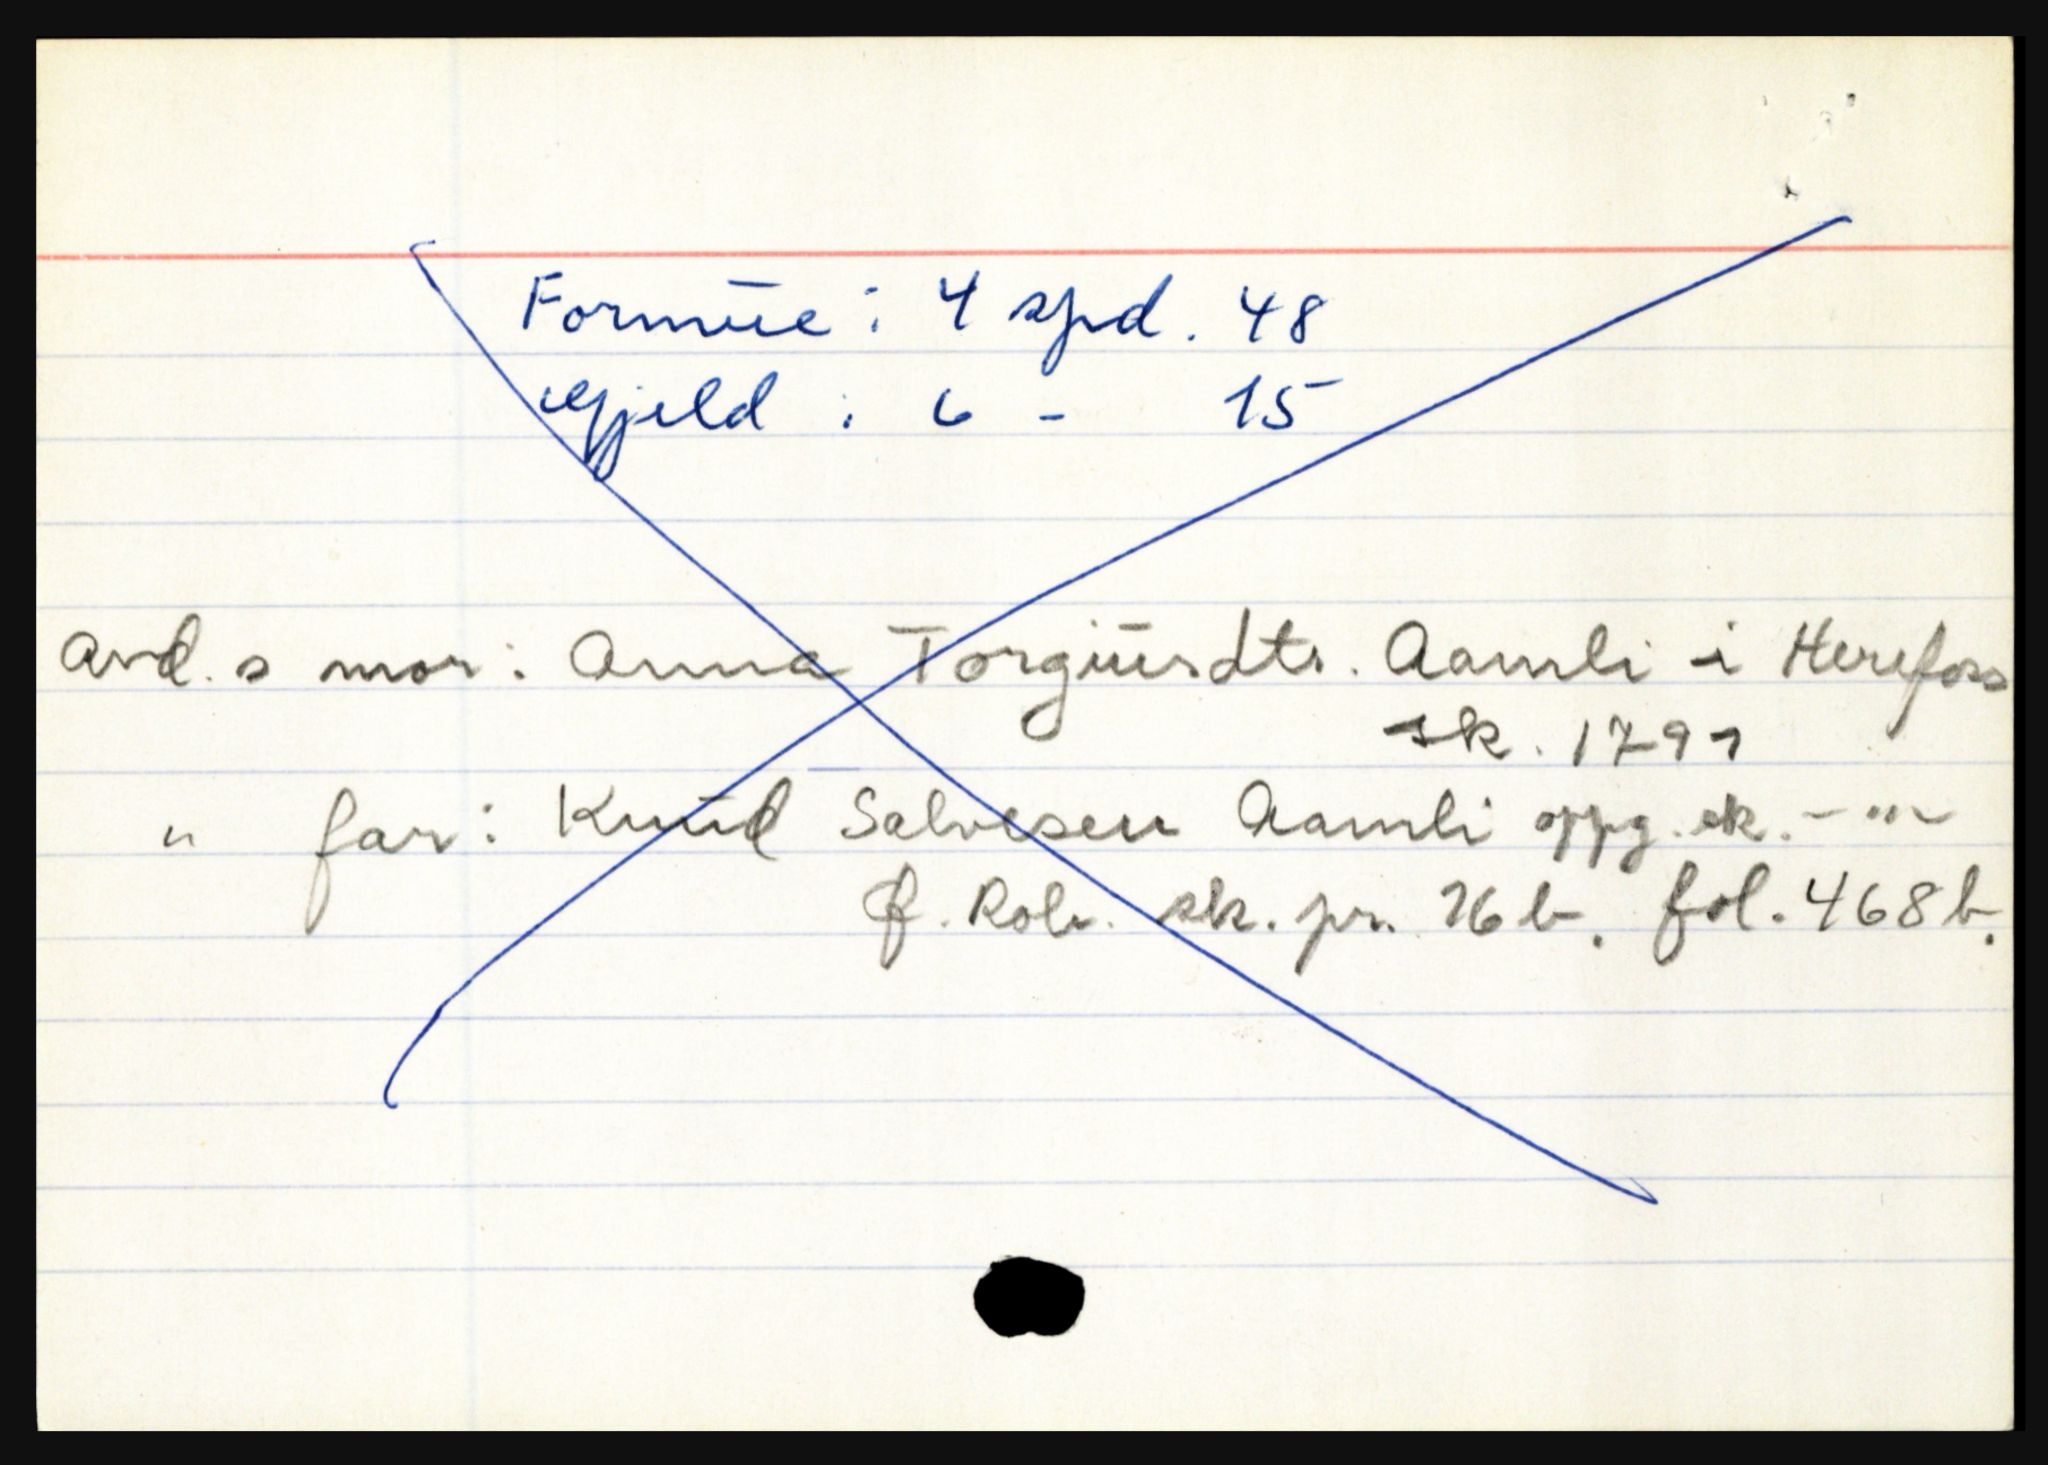 Formue : 4 spd. 48
Gjeld : 6 - 15
avd. s mor: Anna Torgiusdtr. Aamli i Herefoss
sk. 1791
" far: Knud Salvesen Aamli oppg. sk. - " -
cf. Rob. sk. pr. 16 b. fol. 468 b.